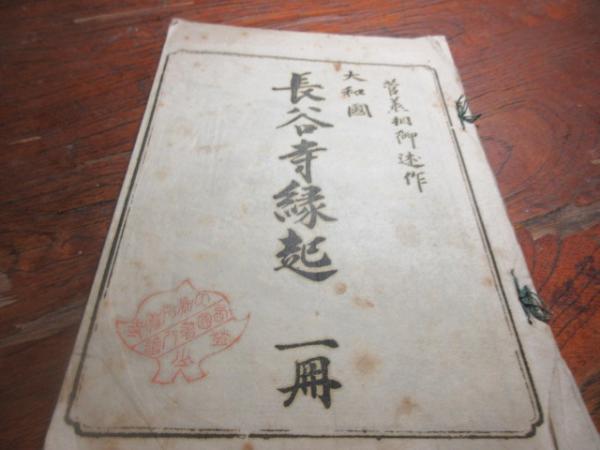 菅丞相御述作
大和國
長谷寺縁起 一冊